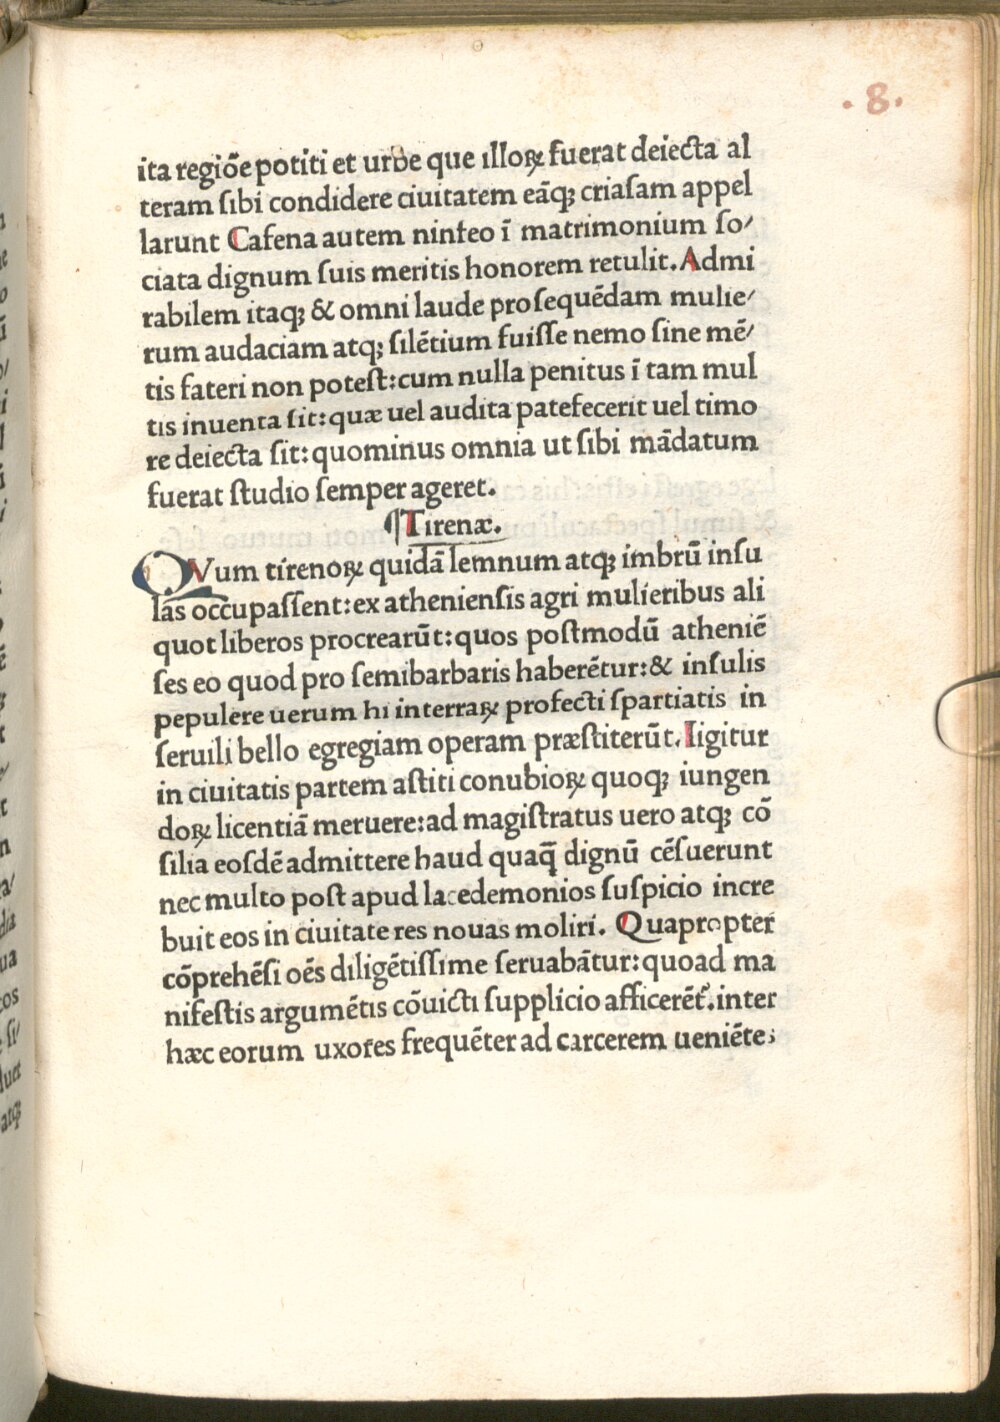 .8.
ita regiōe potiti et urbe que illoꝝ fuerat deiecta al
teram ſibi condidere ciuitatem eāqꝫ criaſam appel
larunt Cafena autem ninfeo ī matrimonium ſo/
ciata dignum ſuis meritis honorem retulit. Admi
rabilem itaqꝫ & omni laude proſequēdam mulie/
rum audaciam atqꝫ ſilētium fuiſſe nemo ſine mē/
tis fateri non poteſt: cum nulla penitus ī tam mul
tis inuenta ſit: quæ uel audita patefecerit uel timo
re deiecta ſit: quominus omnia ut ſibi mādatum
fuerat ſtudio ſemper ageret.
¶Tirenæ.
QVum tirenoꝝ quidā lemnum atqꝫ imbrū inſu
las occupaſſent: ex athenienſis agri mulieribus ali
quot liberos procrearūt: quos poſtmodū atheniē
ſes eo quod pro ſemibarbaris haberētur: & inſulis
pepulere uerum hi interraꝝ profecti ſpartiatis in
ſeruili bello egregiam operam præſtiterūt. Iigitur
in ciuitatis partem aſtiti conubioꝝ quoqꝫ iungen
doꝝ licentiā meruere: ad magiſtratus uero atqꝫ cō
ſilia eoſdē admittere haud quaq̄ dignū cēſuerunt
nec multo poſt apud lacedemonios ſuſpicio incre
buit eos in ciuitate res nouas moliri. Quapropter
cōprehēſi oēs diligētiſſime ſeruabātur: quoad ma
nifeſtis argumētis cōuicti ſupplicio afficerēt᷑. inter
hæc eorum uxores frequēter ad carcerem ueniēte;